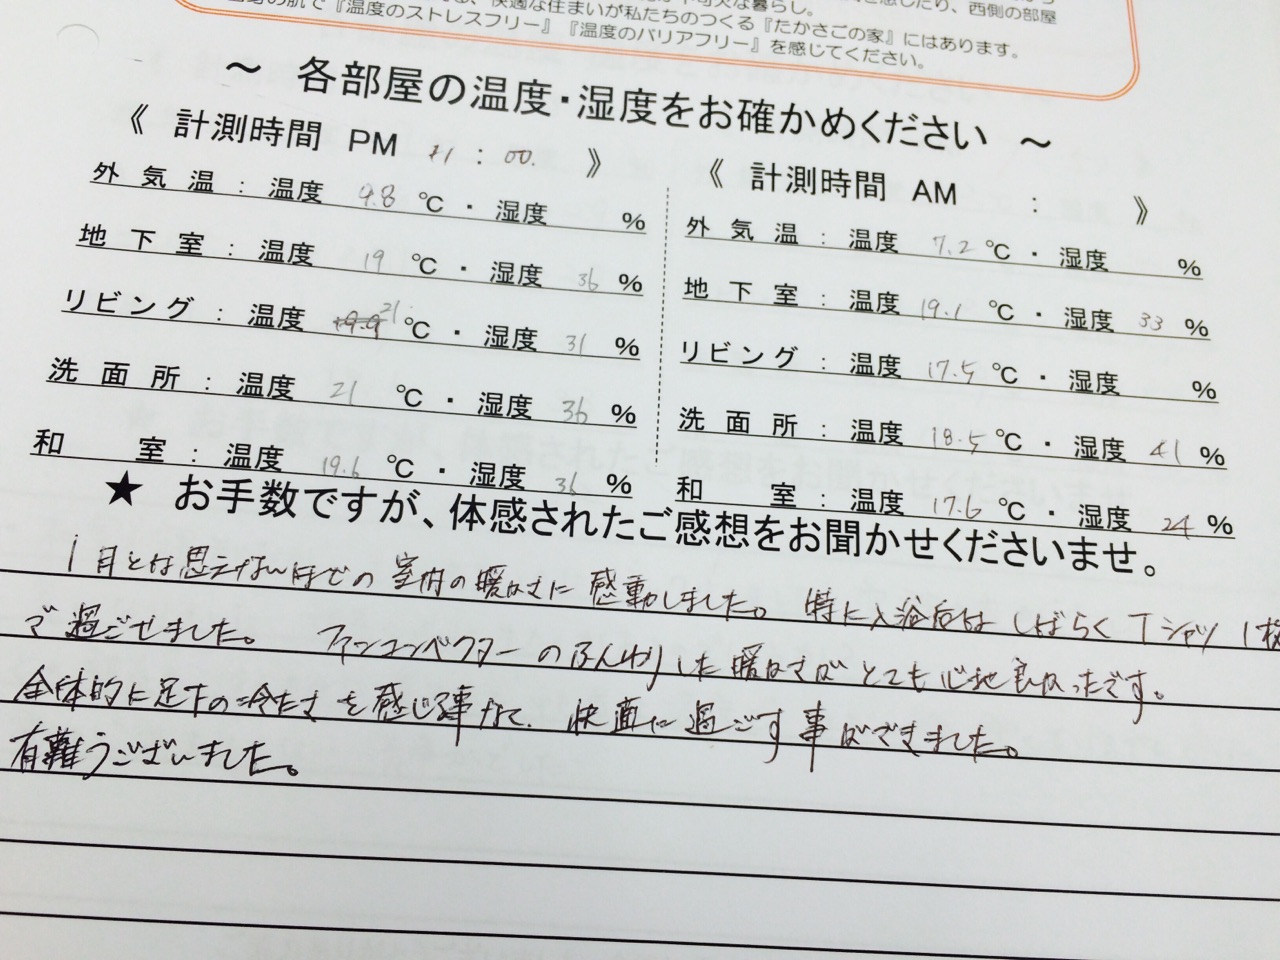 快適な住まいが私たちのつくる『たかさごの家』にはあります。
の肌で『温度のストレスフリー』『温度のバリアフリー』を感じてください。
～ 各部屋の温度・湿度をお確かめください ～
《 計測時間 PM 11 : 00. 》
外気温 : 温度 9.8 ℃ ・ 湿度 %
地下室 : 温度 19 ℃ ・ 湿度 36 %
リビング : 温度 19.9 21 ℃ ・ 湿度 31 %
洗面所 : 温度 21 ℃ ・ 湿度 36 %
和室 : 温度 19.6 ℃ ・ 湿度 36 %
《 計測時間 AM : 》
外気温 : 温度 7.2 ℃ ・ 湿度 %
地下室 : 温度 19.1 ℃ ・ 湿度 33 %
リビング : 温度 17.5 ℃ ・ 湿度 %
洗面所 : 温度 18.5 ℃ ・ 湿度 41 %
和室 : 温度 17.6 ℃ ・ 湿度 24 %
★ お手数ですが、体感されたご感想をお聞かせくださいませ。
1月とは思えないほどの室内の暖かさに感動しました。特に入浴后はしばらくTシャツ1枚
で過ごせました。 ファンコンベクターのふんわりした暖かさがとても心地良かったです。
全体的に足下の冷たさを感じ事なく、快適に過ごす事ができました。
有難うございました。